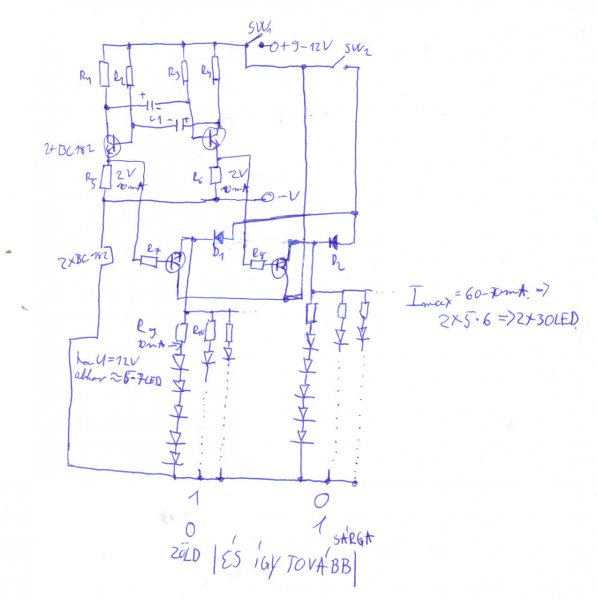 SW1
0+9-12V
SW2
R1 R2 R3 R4
+ -
+ -
2xBC182
R5 2V R6 2V
10mA 10mA
0-V
2xBC182
R7 D1 R8 D2
Imax = 60-70mA. ⇒
2x5·6 ⇒ 2x30LED.
R9 R10
10mA →
ha U=12V
akkor ≈ 5-7LED
1 0
0 1
ZÖLD SÁRGA
|ÉS ÍGY TOVÁBB|